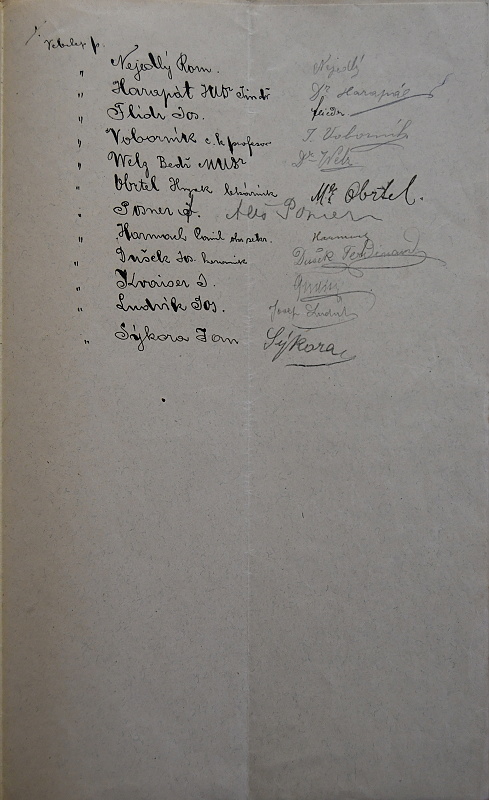 Veleb. p.
" Nejedlý Rom. Nejedlý
" Harapát JUDr Jindř Dr Harapát
" Flídr Jos. Flieder
" Voborník c. k. profesor J. Voborník
" Welz Bedř MUDr Dr Welz
" Obrtel Hynek lékárník Mr Obrtel.
" Posner A. Posner
" Harmach Kamil obr. sekr.
" Dušek Jos. keramik Dušek Ferdinand
" Kvaiser J.
" Ludvík Jos. Josef Ludvík
" Sýkora Jan Sýkora